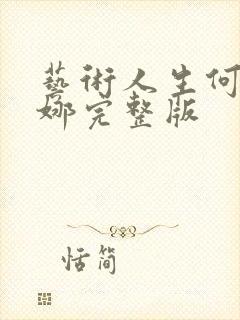 藝術人生何
娜完整版
恬簡